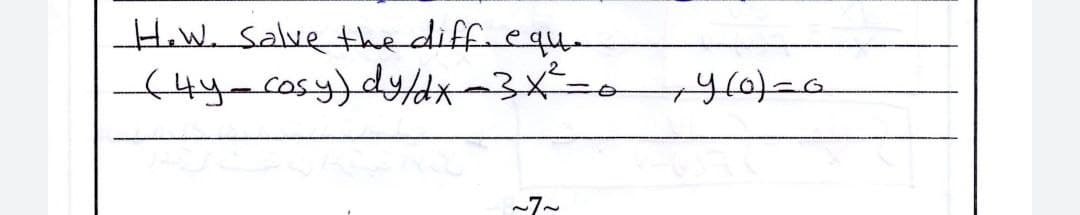 H.W. Salve the diff. equ.
(4y - cos y) dy/dx - 3x² = 0 , y(0) = 0
~7~